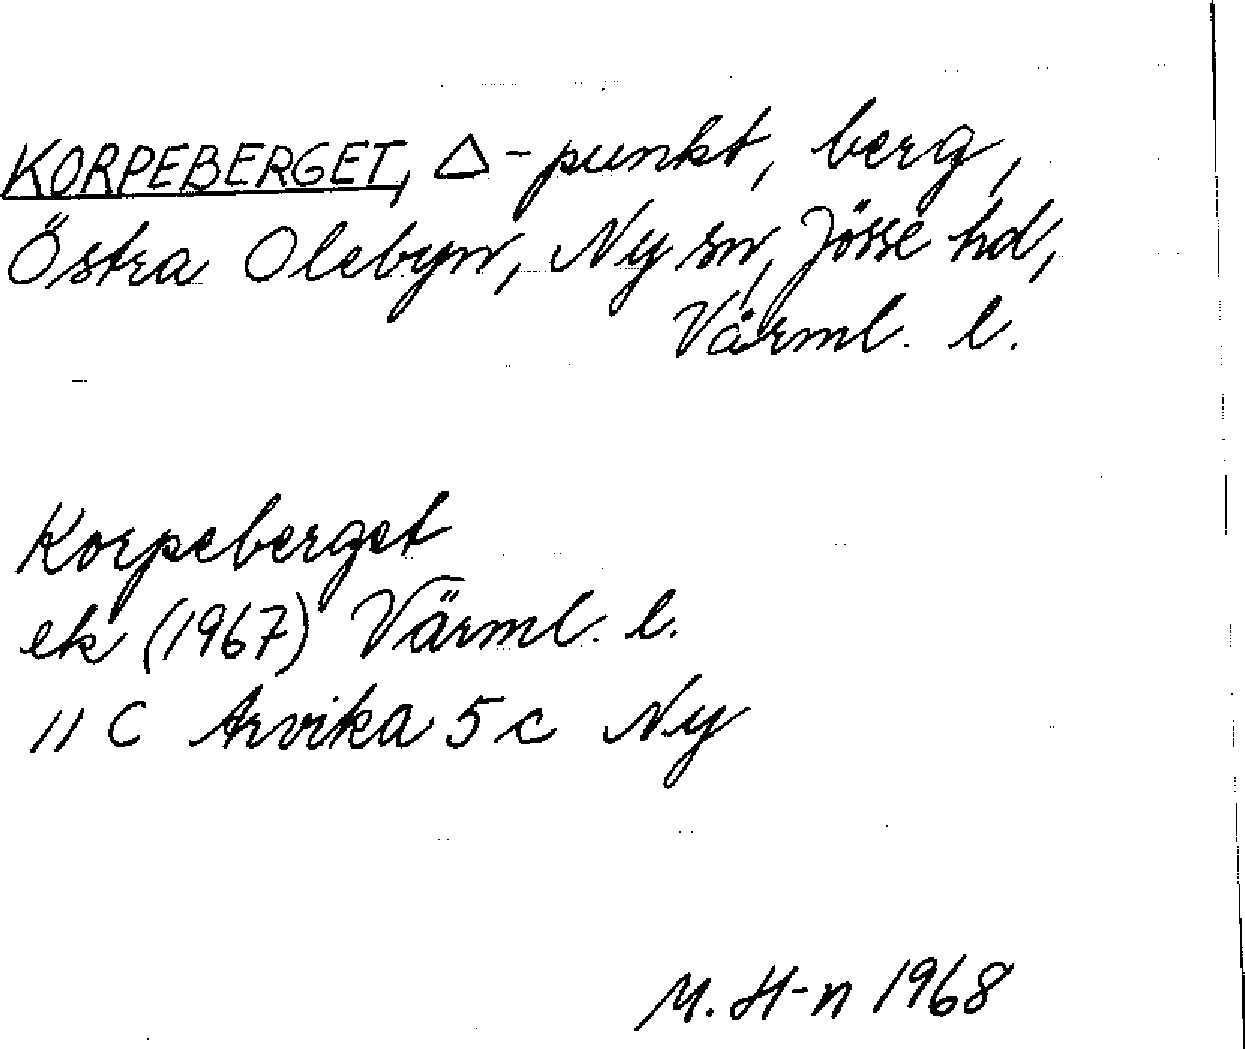 KORPEBERGET, △-punkt, berg,
Östra Olebyn, Ny sn, Jösse hd,
Värml. l.
Korpeberget
ek (1967) Värml. l.
11 C Arvika 5 c Ny
M. H-n 1968